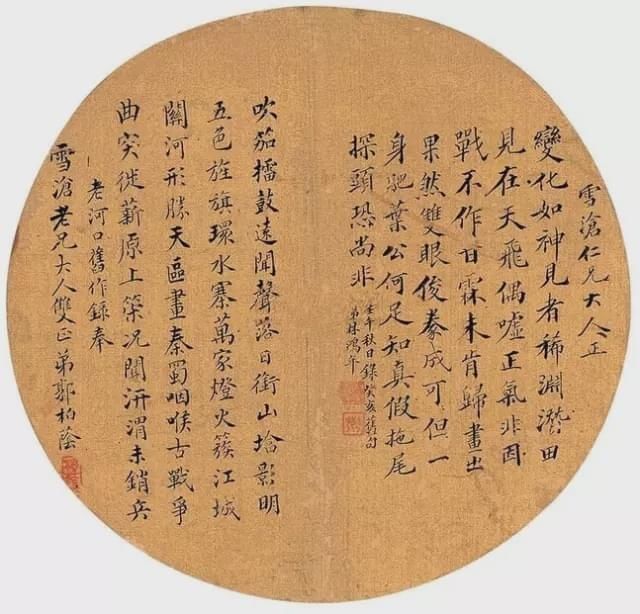 雪滄仁兄大人正
變化如神見者稀淵潛田
見在天飛偶噓正氣非因
戰不作甘霖未肯歸畫出
果然雙眼俊豢成可但一
身肥葉公何足知真假拖尾
探頭恐尚非
壬午秋日錄癸亥舊句
弟林鴻年
吹笳擂鼓遠聞聲落日銜山堠影明
五色旌旗環水寨萬家燈火簇江城
關河形勝天區畫秦蜀咽喉古戰爭
曲突徙薪原上策況聞汧渭未銷兵
老河口舊作錄奉
雪滄老兄大人雙正弟郭柏蔭